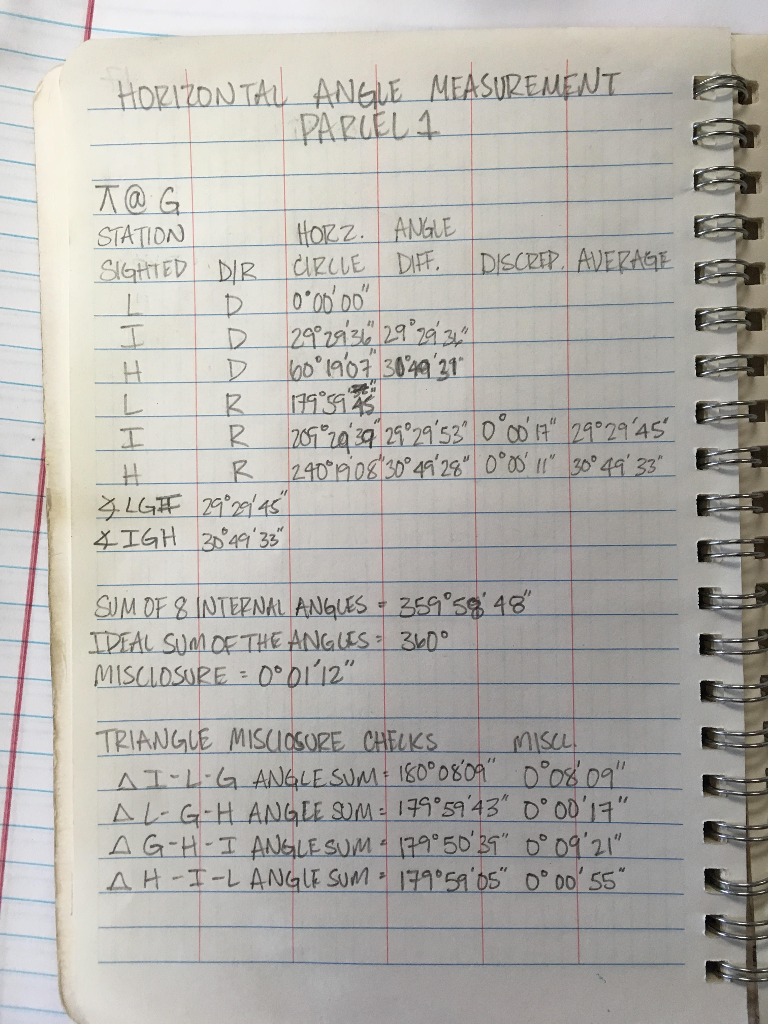 HORIZONTAL ANGLE MEASUREMENT
PARCEL 1
⊼ @ G
STATION HORZ. ANGLE
SIGHTED D/R CIRCLE DIFF. DISCREP. AVERAGE
L D 0°00'00"
I D 29°29'36" 29°29'36"
H D 60°19'07" 30°49'31"
L R 179°59'45"
I R 209°29'39" 29°29'53" 0°00'17" 29°29'45"
H R 240°19'08" 30°49'28" 0°00'11" 30°49'33"
∡ LGI 29°29'45"
∡ IGH 30°49'33"
SUM OF 8 INTERNAL ANGLES = 359°58'48"
IDEAL SUM OF THE ANGLES = 360°
MISCLOSURE = 0°01'12"
TRIANGLE MISCLOSURE CHECKS MISCL.
△ I-L-G ANGLE SUM = 180°08'09" 0°08'09"
△ L-G-H ANGLE SUM = 179°59'43" 0°00'17"
△ G-H-I ANGLE SUM = 179°50'39" 0°09'21"
△ H-I-L ANGLE SUM = 179°59'05" 0°00'55"